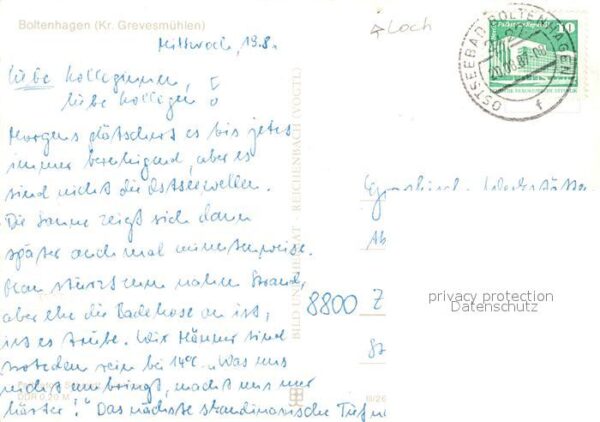 Boltenhagen (Kr. Grevesmühlen)
Mittwoch, 19.8.
Loch
10
OSTSEEBAD BOLTENHAGEN
20.08.87
f
liebe Kolleginnen,
liebe Kollegen!
Morgens plätscherts es bis jetzt
immer beruhigend, aber es
sind nicht die Ostseewellen.
Die Sonne zeigt sich dann
später auch mal minutenweise.
Man stürzt zum nahen Strand,
aber ehe die Badehose an ist,
ist es trübe. Wir Männer sind
trotzdem rein bei 14°C. "Was uns
nicht umbringt, macht uns nur
härter". Das nächste skandinavische Tief
DDR 0,20 M
BILD UND HEIMAT REICHENBACH (VOGTL)
8800 Z
privacy protection
Datenschutz